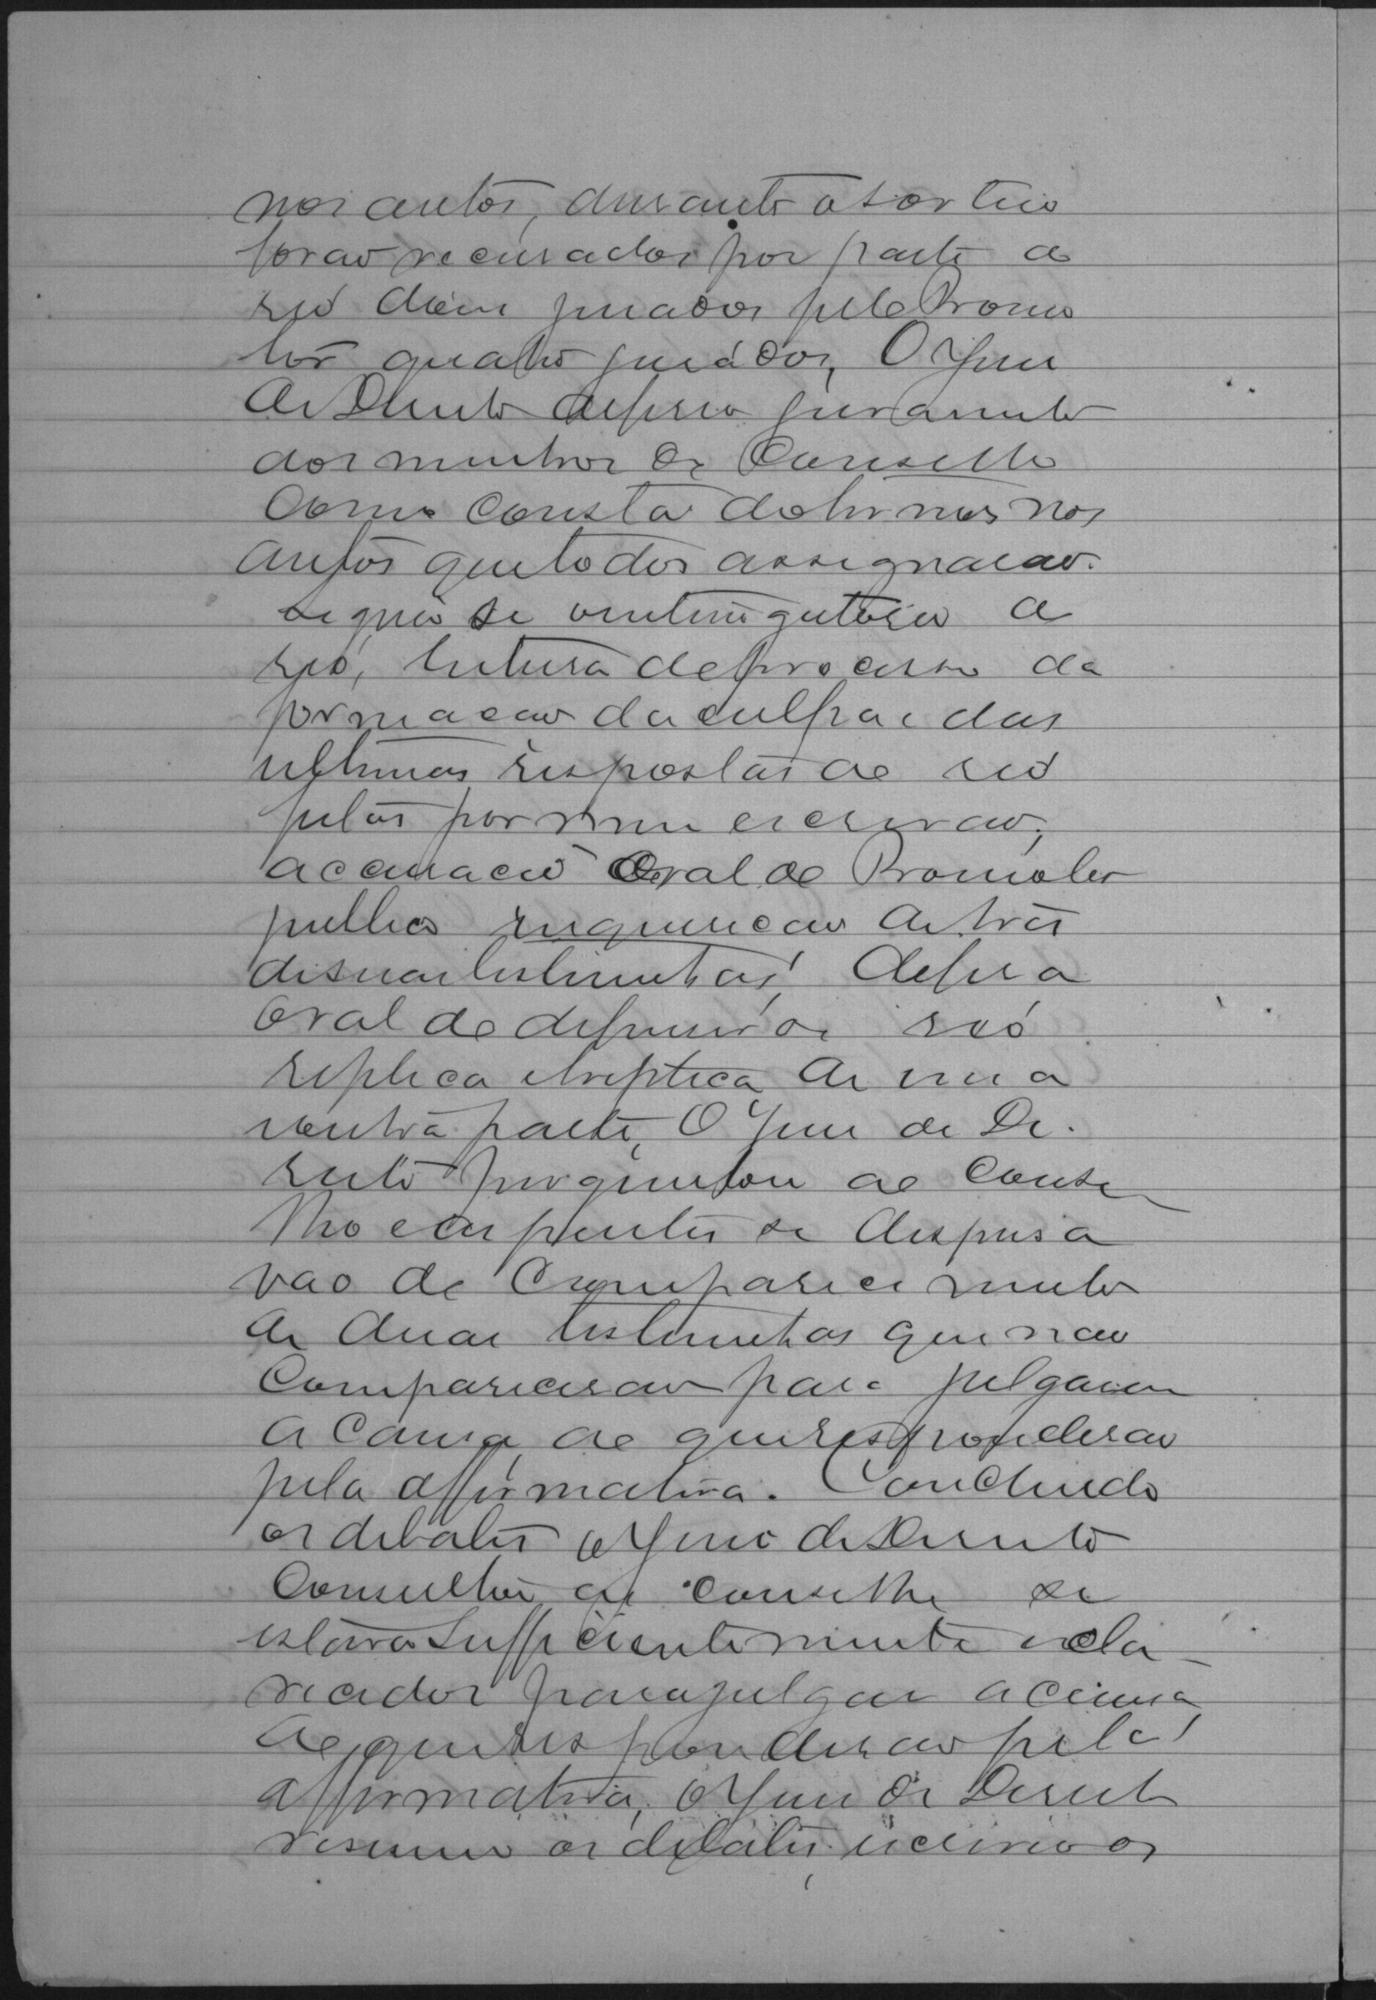 nos autos, durante o sorteio
forao recusados por parte do
reó doeis jurados pelo Promo
tor quatro jurádos, O Juiz
de Direito deferio juramento
dos membros do Conselho
como consta do termos nos
autos que todos assignarao.
seguio se o interrogatorio do
reó, leitura do processo da
formacao da culpa e das
ultimas respostas do reó
feitas por mim escrivao,
accusacao oral do Promotor
publico inquiricao de trés
de suas testimunhas, defesa
oral do defensor do reó
replica e treplica de uma
e outra parte, O Juiz de Di-
reito perguntou ao Conse-
lho e as partes se dispensa
vao do comparecimento
de duas testimunhas que nao
comparecerao para julgarem
a causa, ao que responderao
pela affirmativa. Concluido
os debates o Juiz de Direito
consultou ao conselho se
estava sufficientemente escla-
recidos para julgar a causa,
ao que responderao pela
affirmativa, o Juiz de Direito
resumio os debates, escreveo os